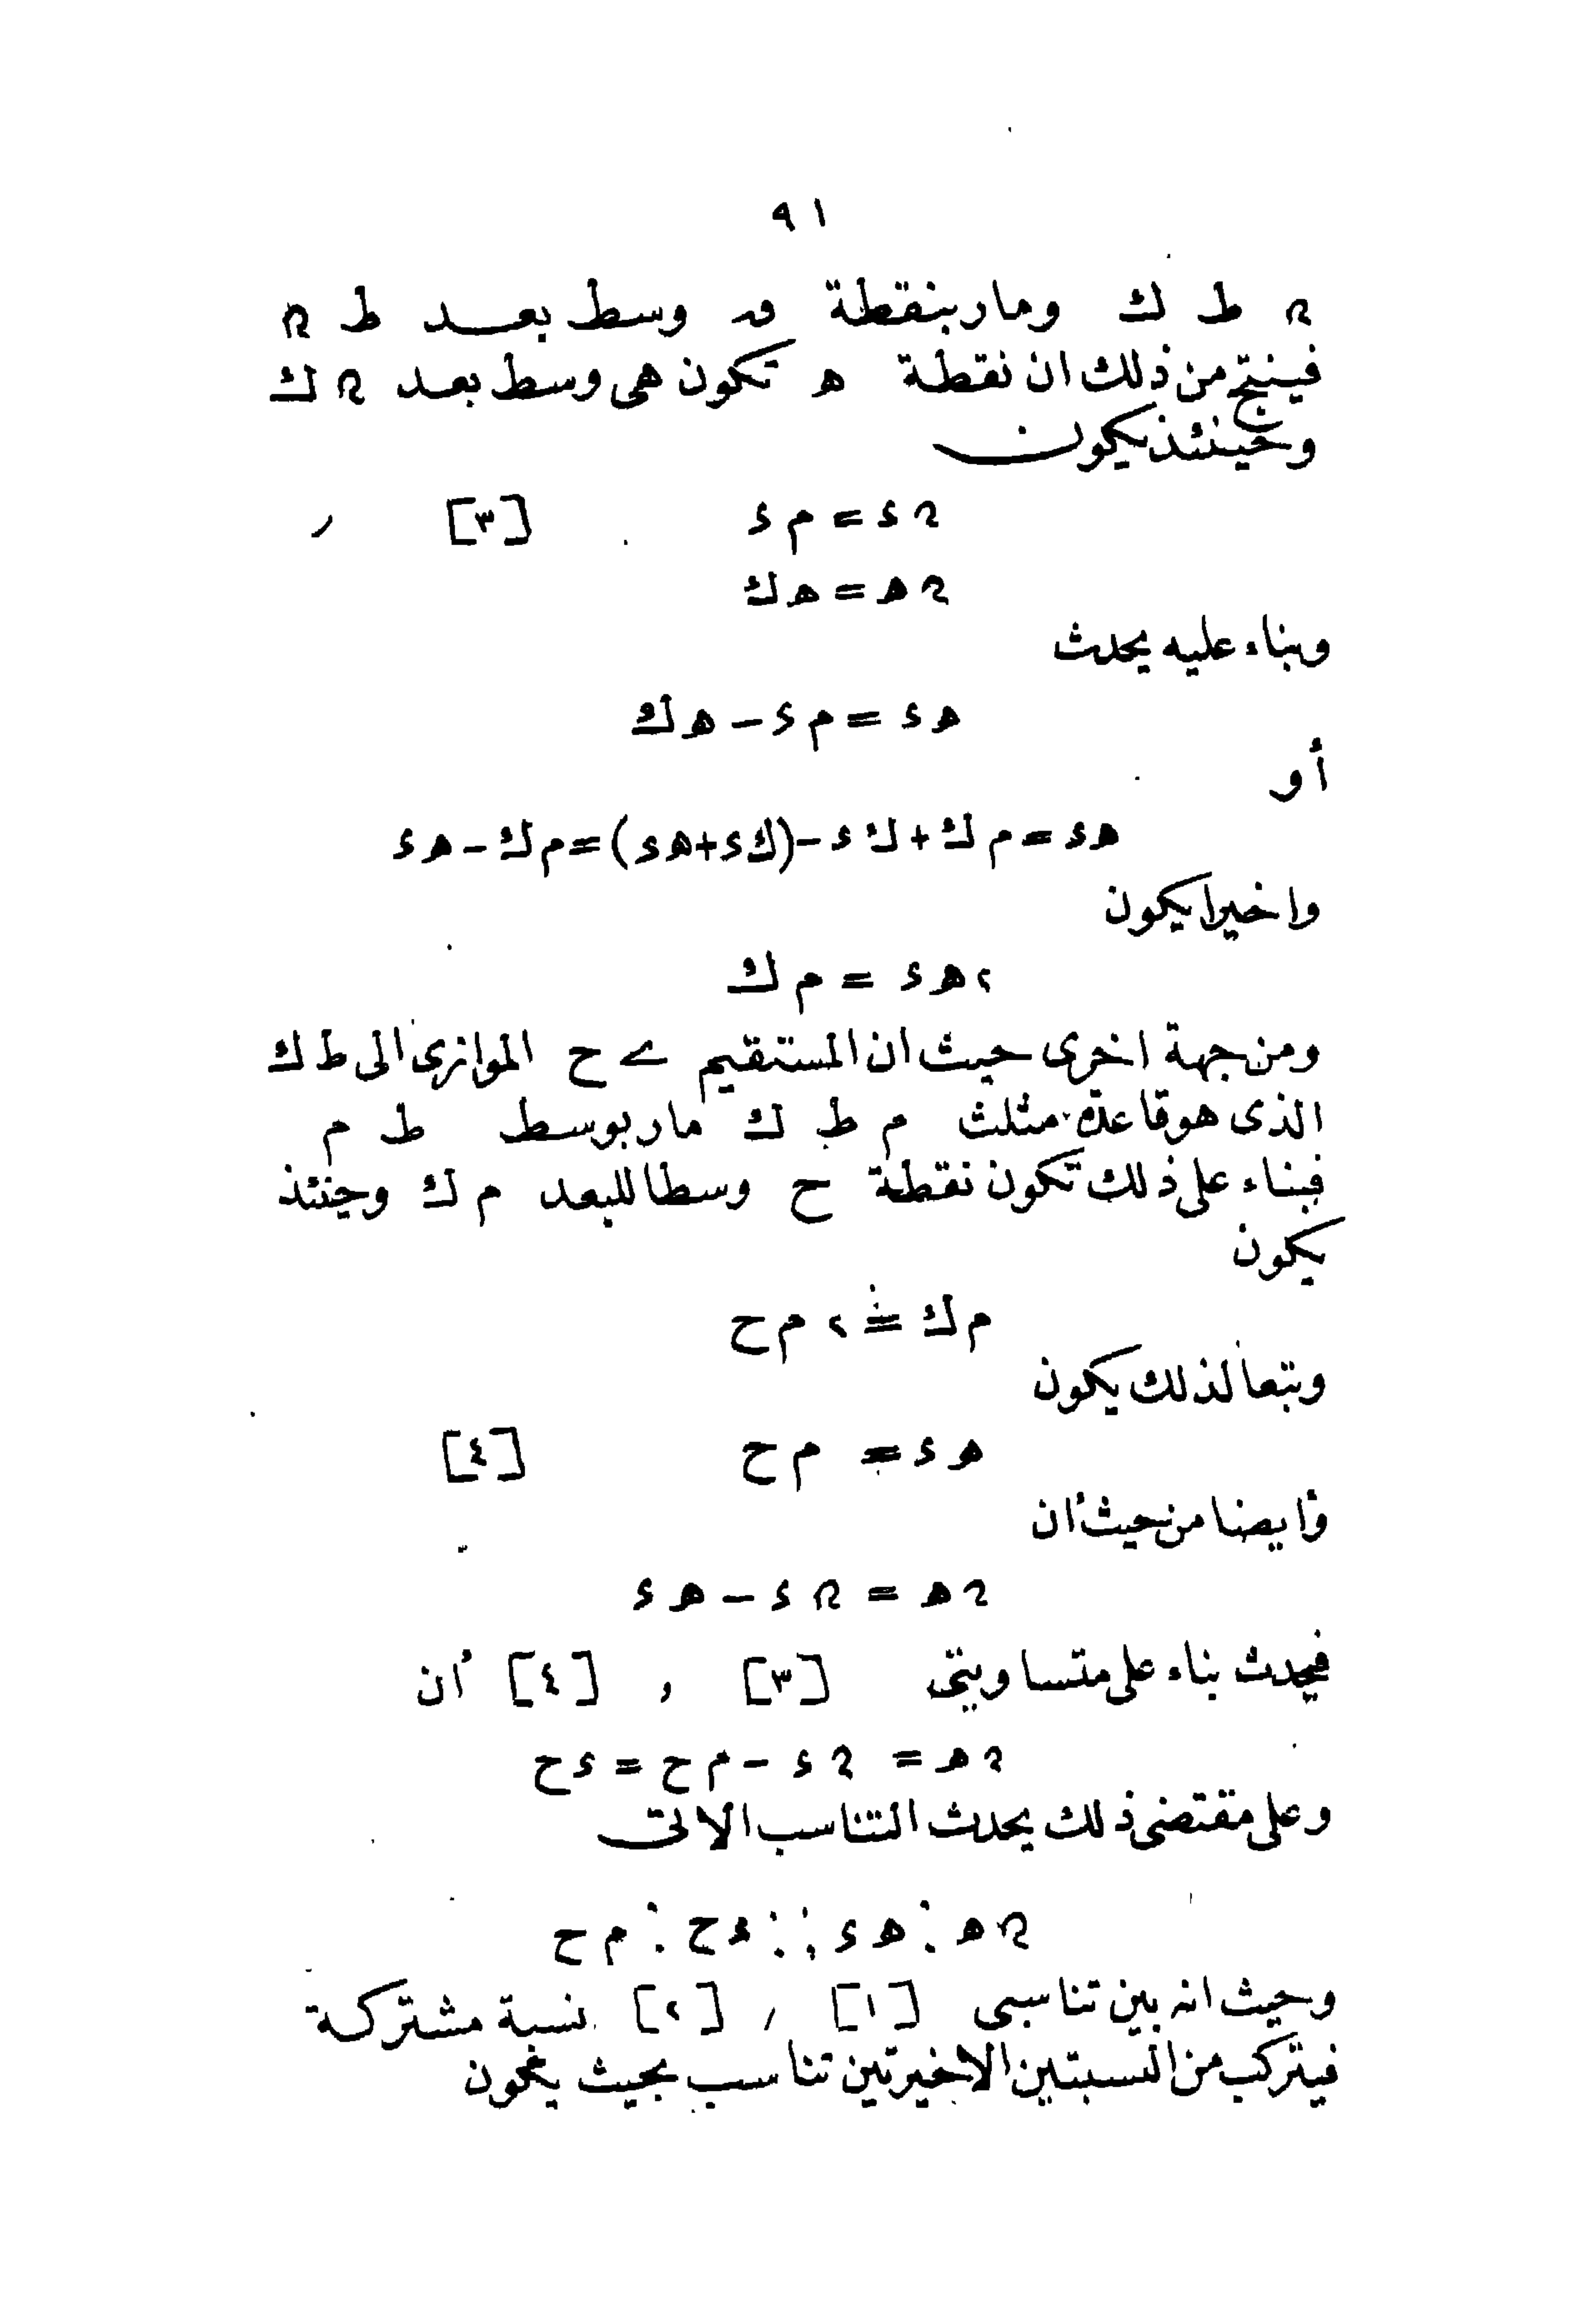 ٩١
م ط ك ومار بنقطة ق وسط بعد ط م
فينتج من ذلك ان نقطة ه تكون هى وسط بعد م ك
وحينئذ يكون
م ء = م ء [٣] ,
م ه = ه ك
وبناء عليه يحدث
ه ء = م ء - ه ك
أو
ه ء = م ك + ك ء - (ك ء + ه ء) = م ك - ه ء
واخيرا يكون
٢ ه ء = م ك
ومن جهة اخرى حيث ان المستقيم ے ح الموازى الى ط ك
الذى هو قاعدة مثلث م ط ك مار بوسط ط م
فبناء على ذلك تكون نقطة ح وسطا للبعد م ك وحينئذ
يكون
م ك = ٢ م ح
وتبعا لذلك يكون
ه ء = م ح [٤]
وأيضا من حيث أن
م ه = م ء - ه ء
فيحدث بناء على متساويتى [٣] , [٤] أن
م ه = م ء - م ح = ء ح
وعلى مقتضى ذلك يحدث التناسب الاتى
م ه : ه ء :: ء ح : م ح
وحيث انه بين تناسبى [١] , [٢] نسبة مشتركة
فيتركب من النسبتين الاخيرتين تناسب بحيث يكون